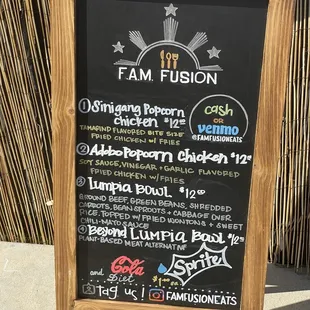 F.A.M. FUSION
1 Sinigang Popcorn
Chicken $12.00
TAMARIND FLAVORED BITE SIZE
FRIED CHICKEN W/ FRIES
cash
OR
venmo
@FAMFUSIONEATS
2 Adobo Popcorn Chicken $12.00
SOY SAUCE, VINEGAR + GARLIC FLAVORED
FRIED CHICKEN W/FRIES
3 Lumpia Bowl $12.00
GROUND BEEF, GREEN BEANS, SHREDDED
CARROTS, BEAN SPROUTS + CABBAGE OVER
RICE. TOPPED W/ FRIED WONTONS + SWEET
CHILI-MAYO SAUCE
4 Beyond Lumpia Bowl $12.00
PLANT-BASED MEAT ALTERNATIVE
Coke
and Diet
$1.00
Sprite
tag us! FAMFUSIONEATS